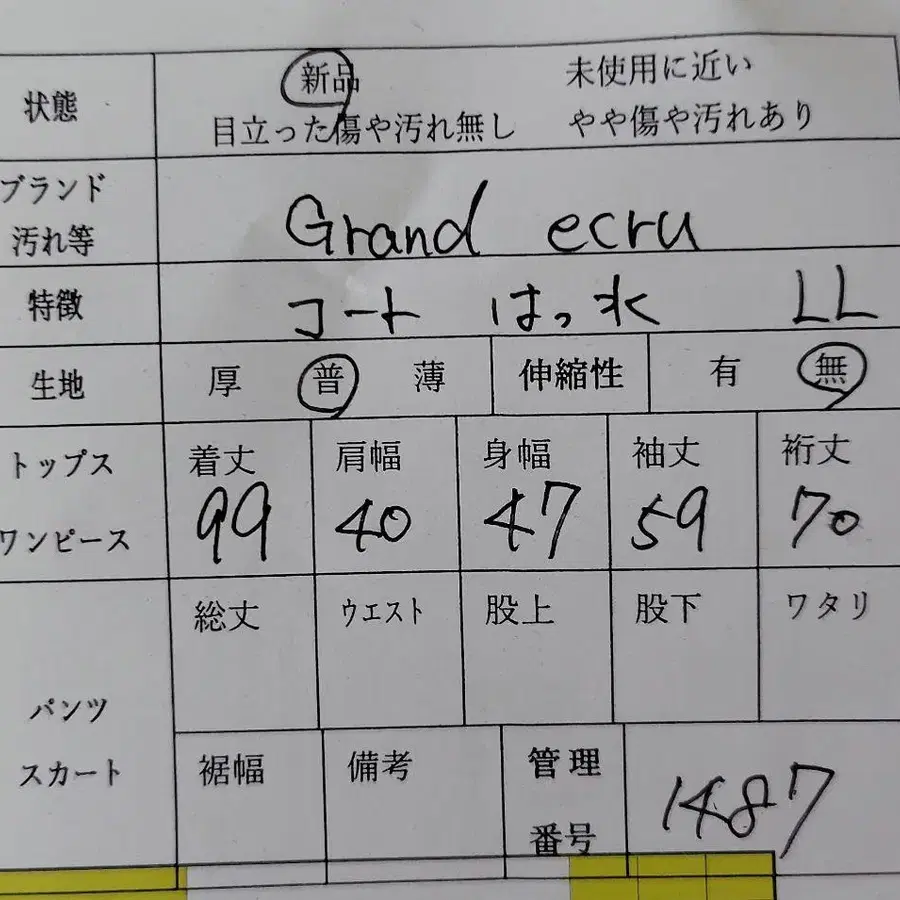 状態 新品 未使用に近い
目立った傷や汚れ無し やや傷や汚れあり
ブランド
汚れ等 Grand ecru
特徴 コート はっ水 LL
生地 厚 普 薄 伸縮性 有 無
トップス 着丈 肩幅 身幅 袖丈 裄丈
ワンピース 99 40 47 59 70
総丈 ウエスト 股上 股下 ワタリ
パンツ
スカート 裾幅 備考 管理
番号 1487